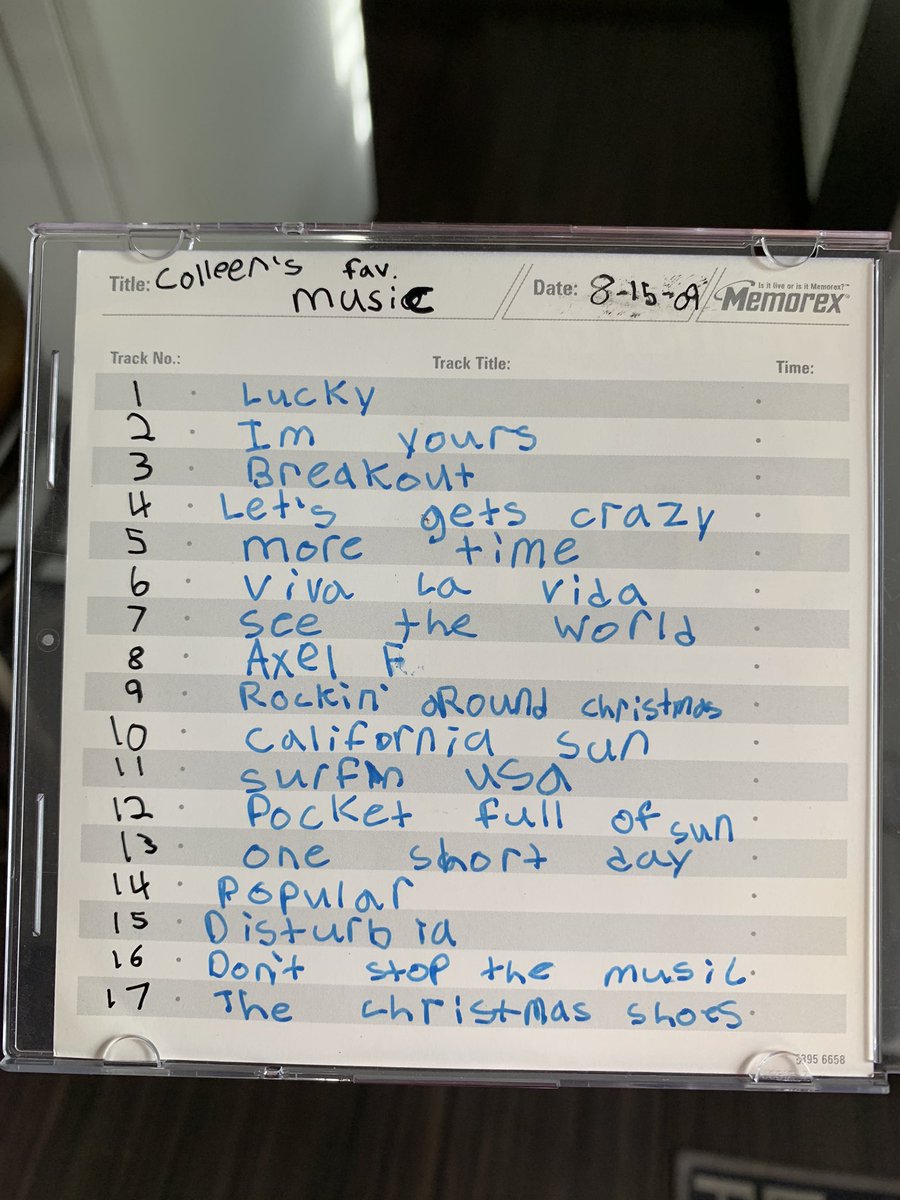 Title: Colleen's fav. music
Date: 8-15-09
Is it live or is it Memorex?™
Memorex®
Track No.: Track Title: Time:
1 Lucky
2 Im yours
3 Breakout
4 Let's gets crazy
5 more time
6 Viva La vida
7 see the world
8 Axel F
9 Rockin' aRound christmas
10 california sun
11 surfin usa
12 Pocket full of sun
13 one short day
14 Popular
15 Disturbia
16 Don't stop the music
17 The christmas shoes
5395 6658